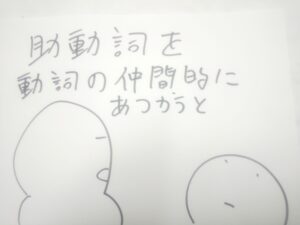 助動詞を
動詞の仲間的に
あつかうと